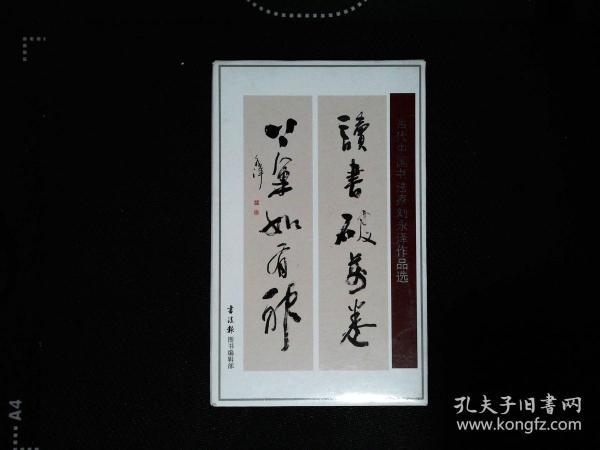 当代中国书法家刘永泽作品选
讀書破萬卷
下筆如有神
永澤
書法報 图书编辑部
A4
孔夫子旧书网
www.kongfz.com